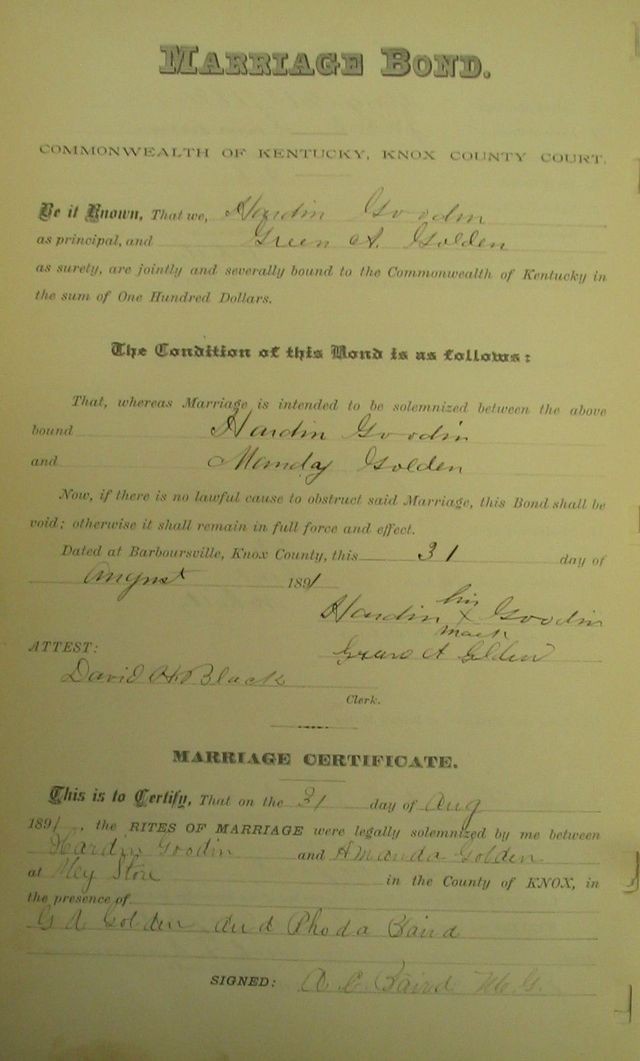 MARRIAGE BOND.
COMMONWEALTH OF KENTUCKY, KNOX COUNTY COURT.
Be it Known, That we, Hardin Goodin
as principal, and Green A. Golden
as surety, are jointly and severally bound to the Commonwealth of Kentucky in
the sum of One Hundred Dollars.
The Condition of this Bond is as follows:
That, whereas Marriage is intended to be solemnized between the above
bound Hardin Goodin
and Manday Golden
Now, if there is no lawful cause to obstruct said Marriage, this Bond shall be
void; otherwise it shall remain in full force and effect.
Dated at Barboursville, Knox County, this 31 day of
August 1891
his
Hardin x Goodin
mark
ATTEST: A Golden
David H Black
Clerk.
MARRIAGE CERTIFICATE.
This is to Certify, That on the 31 day of Aug
1891, the RITES OF MARRIAGE were legally solemnized by me between
Hardin Goodin and Amanda Golden
at My Store in the County of KNOX, in
the presence of
G A Golden and Rhoda Baird
SIGNED: A. C. Baird M. G.